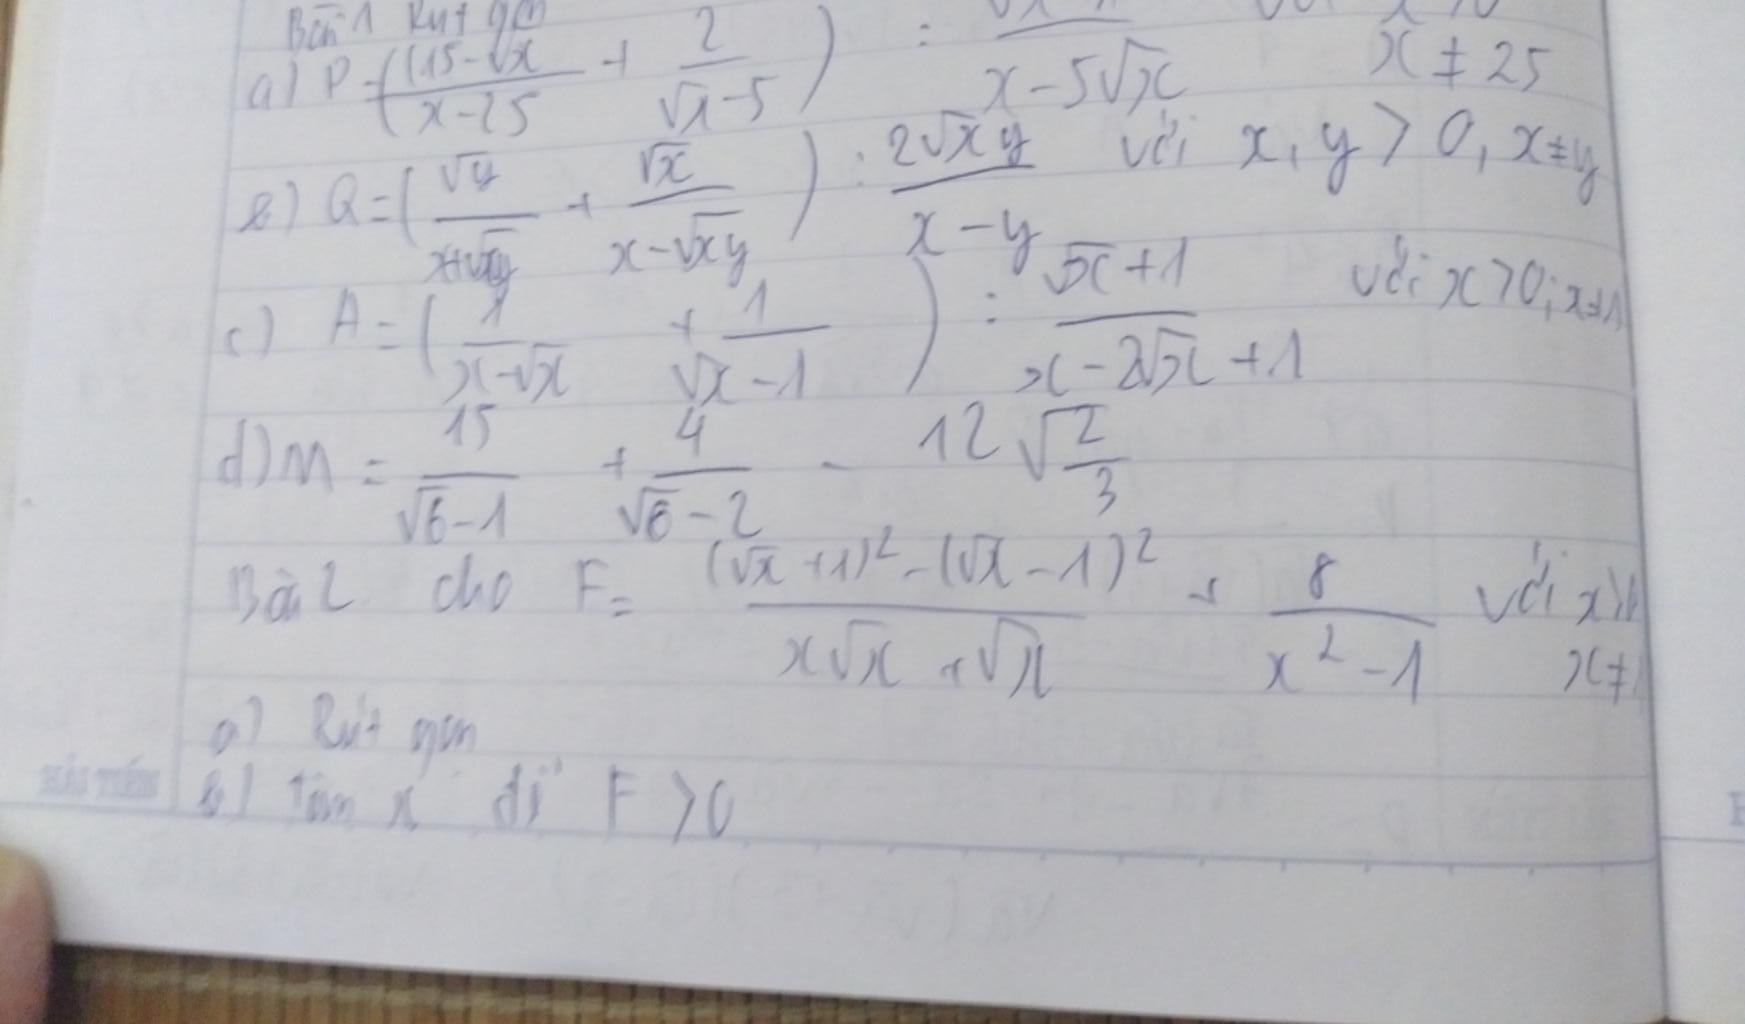 Bài 1 Rút gọn
a) P = ((15-√x)/(x-25) + 2/(√x-5)) : /(x-5√x) x ≠ 25
b) Q = (√y/(x+√xy) + √x/(x-√xy)) : 2√xy/(x-y) với x, y > 0, x≠y
c) A = (1/(x-√x) + 1/(√x-1)) : (√x+1)/(x-2√x+1) với x>0; x≠1
d) M = 15/(√6-1) + 4/(√6-2) - 12√(2/3)
Bài 2 cho F = ((√x+1)²-(√x-1)²)/(x√x+√x) + 8/(x²-1) với x x≠
a) Rút gọn
b) Tìm x để F >0
HẢI TIẾN